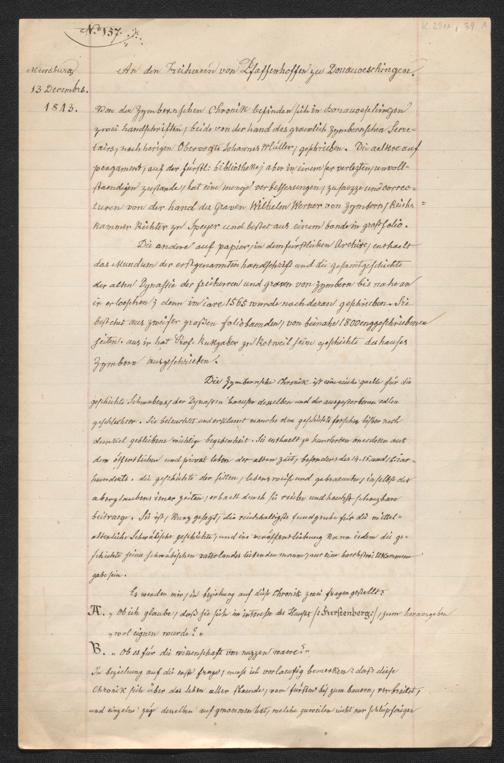 No 157.
K. 2911, 39, 1
An den Freiherren von Pfaffenhoffen zu Donaueschingen.
Mersburg
13 Decembr.
1843.
Von der Zymbernschen Chronik befinden sich in Donaueschingen
zwei handschriften, beide von der hand des graevlich Zymbernschen Secre-
tairs, nachherigen Obervogts Johannes Müller, geschrieben. Die aeltere auf
pergament, auf der fürstl: bibliotheke, aber in einem ser verlezten, unvoll-
staendigen zustande, hat eine menge verbesserungen, zusaeze und correc-
turen von der hand des Graven Wilhelm Werner von Zymbern, Reichs-
kammer Richter zu Speyer und bestet aus einem bande in grossfolio.
Die andre auf papir, in dem fürstlichen Archive, enthaelt
das Mundum der erstgenannten handschrift und die gesamtgeschichte
der alten Dynastie der freiherren und graven von Zymbern bis nahe an
ir erloeschen; denn im iare 1565 wurde noch daran geschrieben. Sie
bestehet aus zwei ser grossen foliobaenden, von beinahe 1800 enggeschriebenen
seiten. aus ir hat Prof. Ruckgaber zu Rotweil seine geschichte des hauses
Zymbern ausgeschrieben.
Die Zymbernsche Chronik ist eine reiche quelle für die
geschichte Schwabens, der Dynasten haeuser desselben und der ausgestorbenen edlen
geschlechter. Sie beleuchtet und erklaert manche dem geschichtsforscher bisher noch
dunkel gebliebene wichtige begebenheit. Sie enthaelt zu hunderten anecdoten aus
dem öffentlichen und privat leben der alten zeit, besonders des 14. 15. und 16. iar-
hunderts. die geschichte der sitten, lebensweise und gebraeuche, ia selbst des
aberglaubens iener zeiten, erhaelt durch sie reiche und hoechst schaezbare
beitraege. Sie ist, kurz gesagt, die reichhaltigste fundgrube für die mittel-
alterliche Schwäbische geschichte, und ire veröffentlichung kann ieden die ge-
schichte seines schwäbischen vaterlandes liebenden manne, nur eine hoechst willkommene
gabe sein.
Es werden mir, in beziehung auf dise Chronik zwei fragen gestellt:
A. „Ob ich glaube, dass sie sich im interesse des Hauses /:Fürstenberg:/, zum herausgeben
„wol eignen wurde?"
B. „Ob es für die wissenschaft von nuzzen waere?"
In beziehung auf die erste frage, muss ich vorlaeufig bemerken: dass dise
Chronik sich über das leben aller staende, vom fürsten bis zum bauern, verbreitet,
und einzelne züge derselben auf genommen hat, welche zuweilen nicht nur schlüpfriger